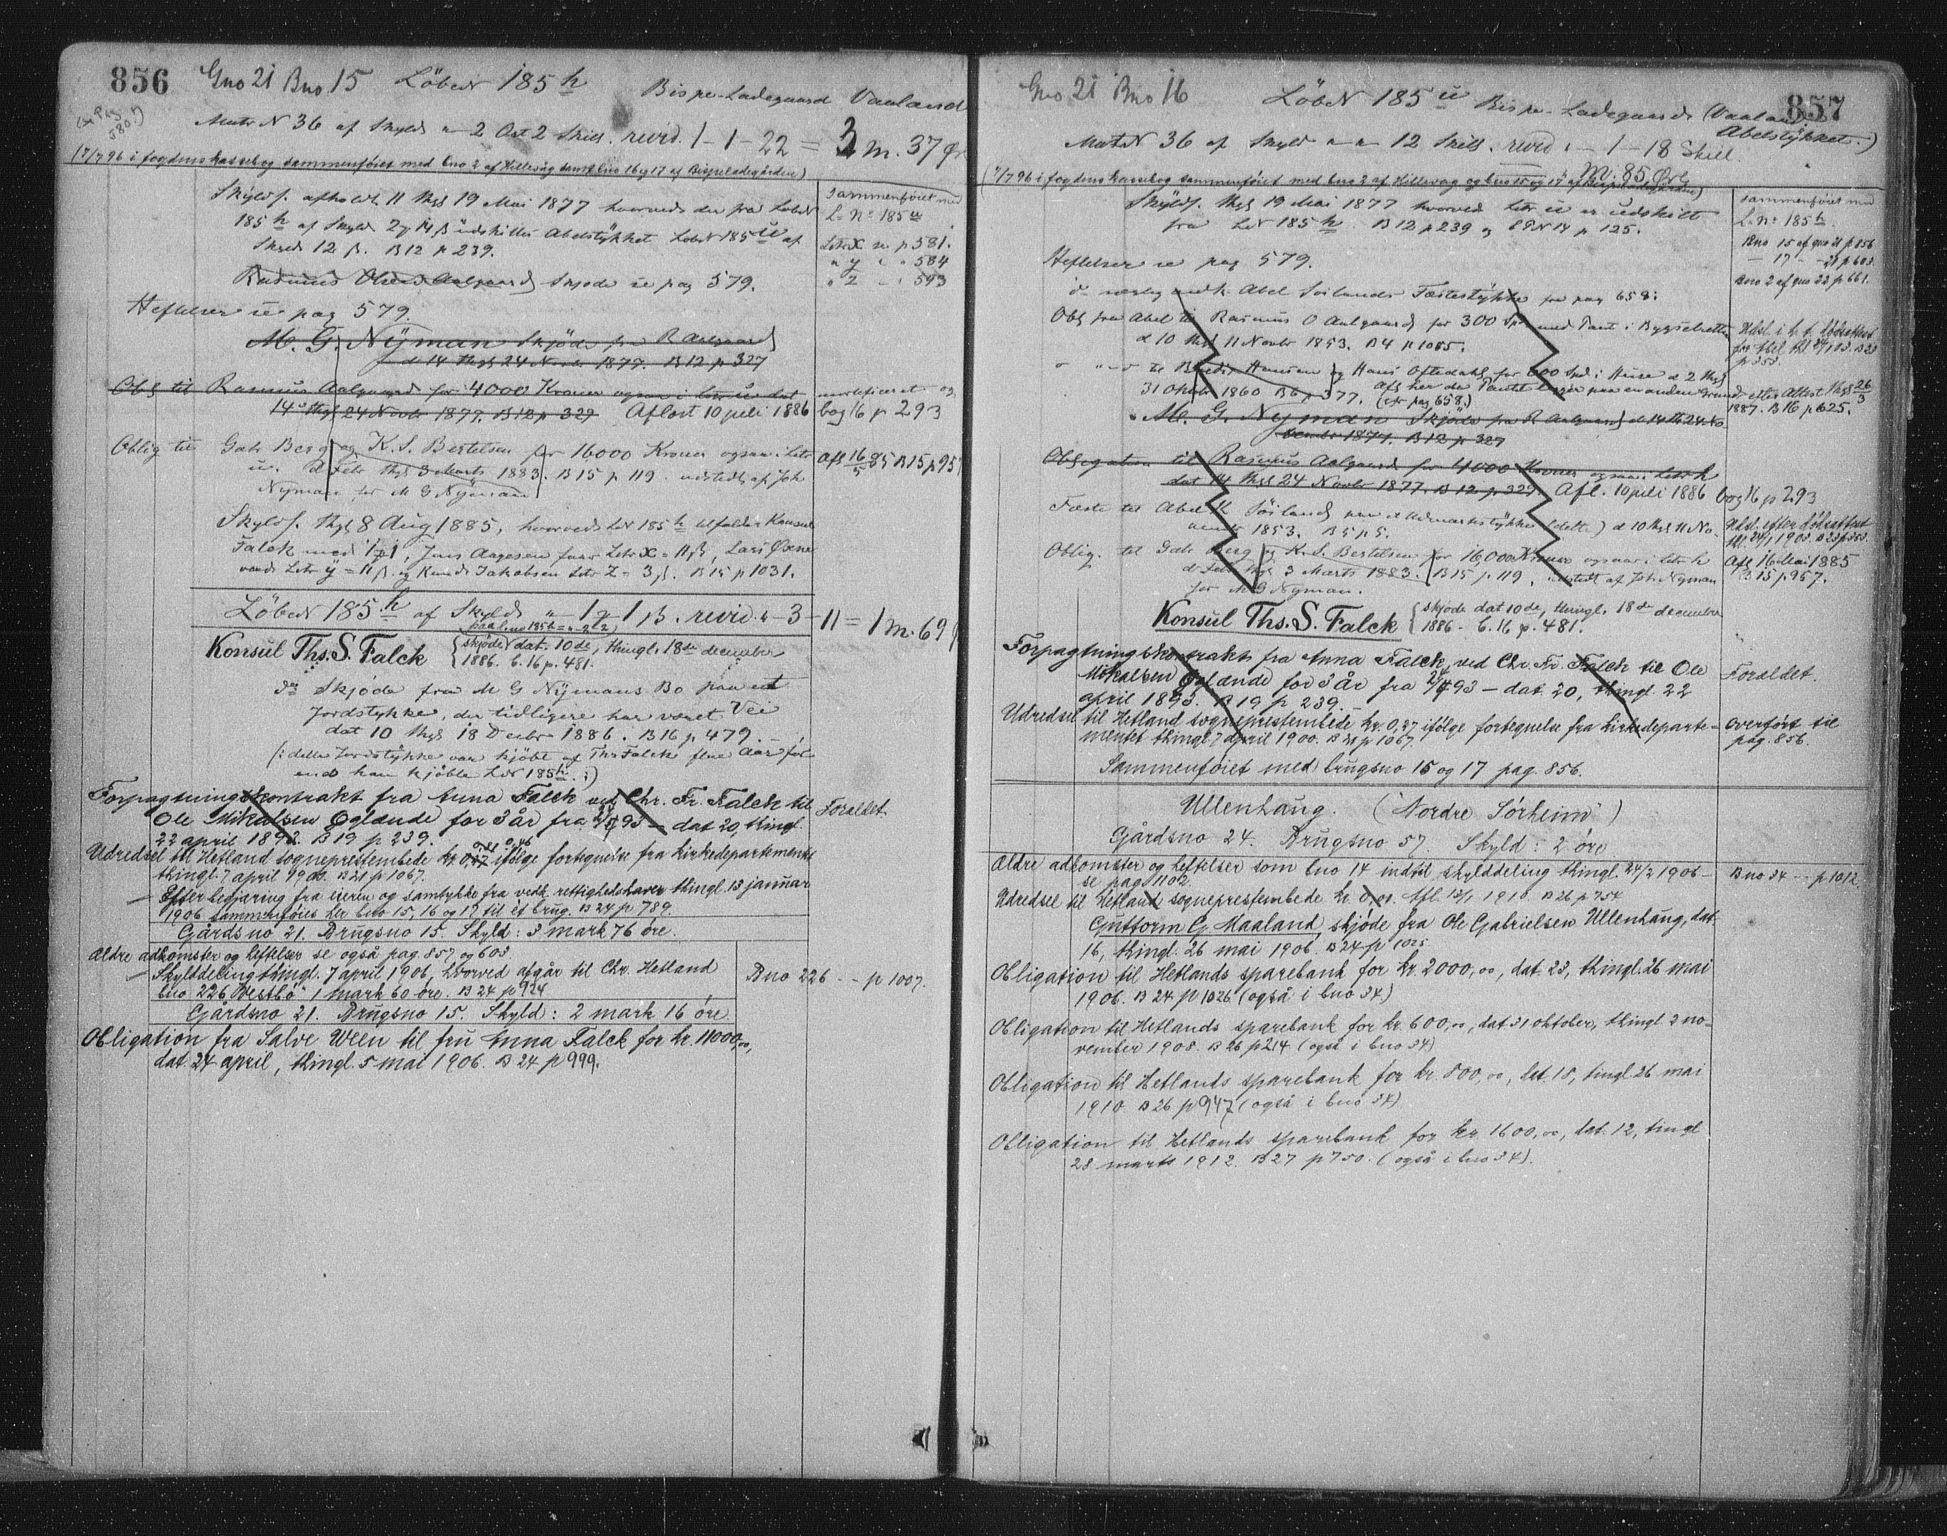 856 Gno 21 Bno 15 Löbe N 185 h Bispe-Ladegaard Vaaland
(se Pag 580.)
Matr N 36 af Skyld " 2 Ort 2 Skill. revid. 1-1-22 = 3 m. 37 Ør
17/7 96 i fogdens kassebog sammenføiet med bno 2 af Hillevåg samt bno 16 og 17 af Bispeladegården)
Skyldf. afholdt 11 thgl 19 Mai 1877 hvorved der fra Løbe N
185 h af Skyld 2 14 β udskilles Abelstykket Løbe N 185 u af
Skyld 12 β. B 12 p 239.
Rasmus Olsen Aalgaard Skjøde se pag 579.
Sammenføiet med
L. No 185 u
Litr X se p 581.
" y " " 584
" z " " 593
Heftelser se pag 579.
M. G. Nyman Skjøde fra R Aalgaard
d 14 thgl 24 Novbr 1877. B 12 p 327
Obl til Rasmus Aalgaard for 4000 Kroner ogsaa i Litr u dat
14 thgl 24 Novbr 1877. B 12 p 329 Aflöst 10 juli 1886
mortificeret og
bog 16 p 293
Oblig til Gabr Berg og K. S. Bertelsen for 16000 Kroner ogsaa i Litr
u. d Febr thgl 3 Marts 1883. B 15 p 119. udstedt af Joh
Nyman for M G Nyman
Afl 16/5 85 B 15 p 957
Skyldf. thgl 8 Aug 1885, hvorved Lb 185 h tilfaldes Konsul
Falck med 1 1, Jens Aagesen faar Litr X = 11 β, Lars Øxne
vad Litr y = 11 β og Knud Jakobsen Litr Z = 3 β. B 15 p 1031.
Löbe N 185 h af Skyld " 1 1 β. revid. " 3 - 11 = 1 m. 69 ø
Konsul Ths. S. Falck { skjøde dat. 10de, thingl. 18de december
1886. b. 16 p. 481.
do Skjøde fra M G Nymans Bo paa et
Jordstykke, der tidligere har været Vei
dat 10 thgl 18 Decbr 1886. B 16 p 479.
(: dette Jordstykke var kjöbt af Ths Falck flere Aar før
end han kjöbte L N 185 h. :)
Forpagtningskontrakt fra Anna Falck ved Chr. Fr. Falck til
Ole Mikalsen Øglænde for 3 år fra 24/4 93 – dat. 20, thingl.
22 april 1893. B 19 p 239.
Foraldet.
Udredsel til Hetland sogneprestembede kr 0,37 ifölge fortegnelse fra kirkedepartementet
thingl. 7 april 1900. B 21 p 1067.
Efter begjæring fra eieren og samtykke fra vedk. rettighedshaver thingl. 13 januar
1906 sammenføies her bno 15, 16 og 17 til ét brug. B 24 p 789.
Gårds no 21. Brugsno 15. Skyld: 3 mark 76 øre.
Ældre adkomster og heftelser se også pag. 857 og 603
Skylddeling thingl. 7 april 1906, hvorved afgår til Chr. Hetland
bno 226 "Vestbø" 1 mark 60 øre. B 24 p 924
Bno 226 - - p 1007.
Gårdsno 21. Brugsno 15. Skyld: 2 mark 16 öre.
Obligation fra Salve Ween til fru Anna Falck for kr. 11000,00,
dat. 24 april, thingl. 5 mai 1906. B 24 p 999.
Gno 21 Bno 16 Löbe N 185 u Bispe-Ladegaard (Vaaland 857
Abelstykket.)
Matr N 36 af Skyld " " 12 Skill. revid " - 1 - 18 Skill.
M. 85 Øre
(17/7 96 i fogdens kassebog sammenføiet med bno 2 af Hillevåg og bno 15 og 17 af Bispeladegården)
Skyldf. thgl 19 Mai 1877 hvorved Litr u er udskilt
fra L N 185 h. B 12 p 239 p 125.
Sammenføiet med
L. No 185 h.
Bno 15 af gno 21 p 856
- 17 - - 21 p 603
bno 2 af gno 22 p 661.
Heftelser se pag 579.
Abel Soilands Fæstestykke paa pag 658:
Obl fra Abel til Rasmus O Aalgaard for 300 Spd med Pant i Bygselretten
d 10 thgl 11 Novbr 1853. B 4 p 1085.
Hans Oftedahl for 600 Spd i Huse d 2 thgl
31 Oktbr 1860 B 6 p 377. (se pag 658.)
efter Attest thgl 26/3
1887. B 16 p 625.
M. G. Nyman Skjøde fra R Aalgaard d 14 th 24 No
vember 1877. B 12 p 327
Obligation til Rasmus Aalgaard for 4000 Kroner ogsaa Litr h
dat 14 thgl 24 Novbr 1877. B 12 p 329. Afl. 10 juli 1886
bog 16 p 293
Fæste til Abel K Söiland paa et Udmarksstykke (dette) d 10 thgl 11 No-
vember 1853. B 5 p 5.
Oblig. til Gabr Berg og K. S. Bertelsen for 16000 Kroner ogsaa i Litr h
d Febr thgl 3 Marts 1883. B 15 p 119. udstedt af Joh Nyman
for M G Nyman.
Afl 16 Mai 1885
B 15 p 957.
Konsul Ths. S. Falck { skjøde dat 10de, thingl. 18de december
1886 - b. 16 p. 481.
Forpagtningskontrakt fra Anna Falck ved Chr. Fr. Falck til Ole
Mikalsen Øglænde for 3 år fra 24/4 93 – dat. 20, thingl. 22
april 1893. B 19 p 239.
Foraldet.
Udredsel til Hetland sogneprestembede kr. 0,37 ifölge fortegnelse fra kirkedeparte-
mentet thingl. 7 april 1900. B 21 p 1067.
Overført til
pag. 856.
Sammenföiet med brugsno 15 og 17 pag. 856.
Ullenhaug. ("Nordre Sørheim")
Gårdsno 24. Brugsno 57. Skyld: 2 øre
Ældre adkomster og heftelser som bno 14 indtil skylddeling thingl. 24/2 1906 -
se pag. 1102
Bno 34 - - p 1012.
Udredsel til Hetland sogneprestembede kr. 0,01. Afl. 12/1 1910 B 26 p 754
Guttorm G. Maaland skjøde fra Ole Gabrielsen Ullenhaug, dat.
16, thingl. 26 mai 1906. B 24 p 1025
Obligation til Hetlands sparebank for kr. 2000,00, dat. 23, thingl. 26 mai
1906. B 24 p 1026 (også i bno 34)
Obligation til Hetlands sparebank for kr. 600,00, dat 31 oktober, thingl 2 no-
vember 1908. B 26 p 214 (også i bno 34)
Obligation til Hetlands sparebank for kr. 800,00, dat. 18, tingl 26 mai
1910. B 26 p 947 (også i bno 34)
Obligation til Hetlands sparebank for kr. 1600,00, dat. 12, tingl
28 marts 1912. B 27 p 750. (også i bno 34).